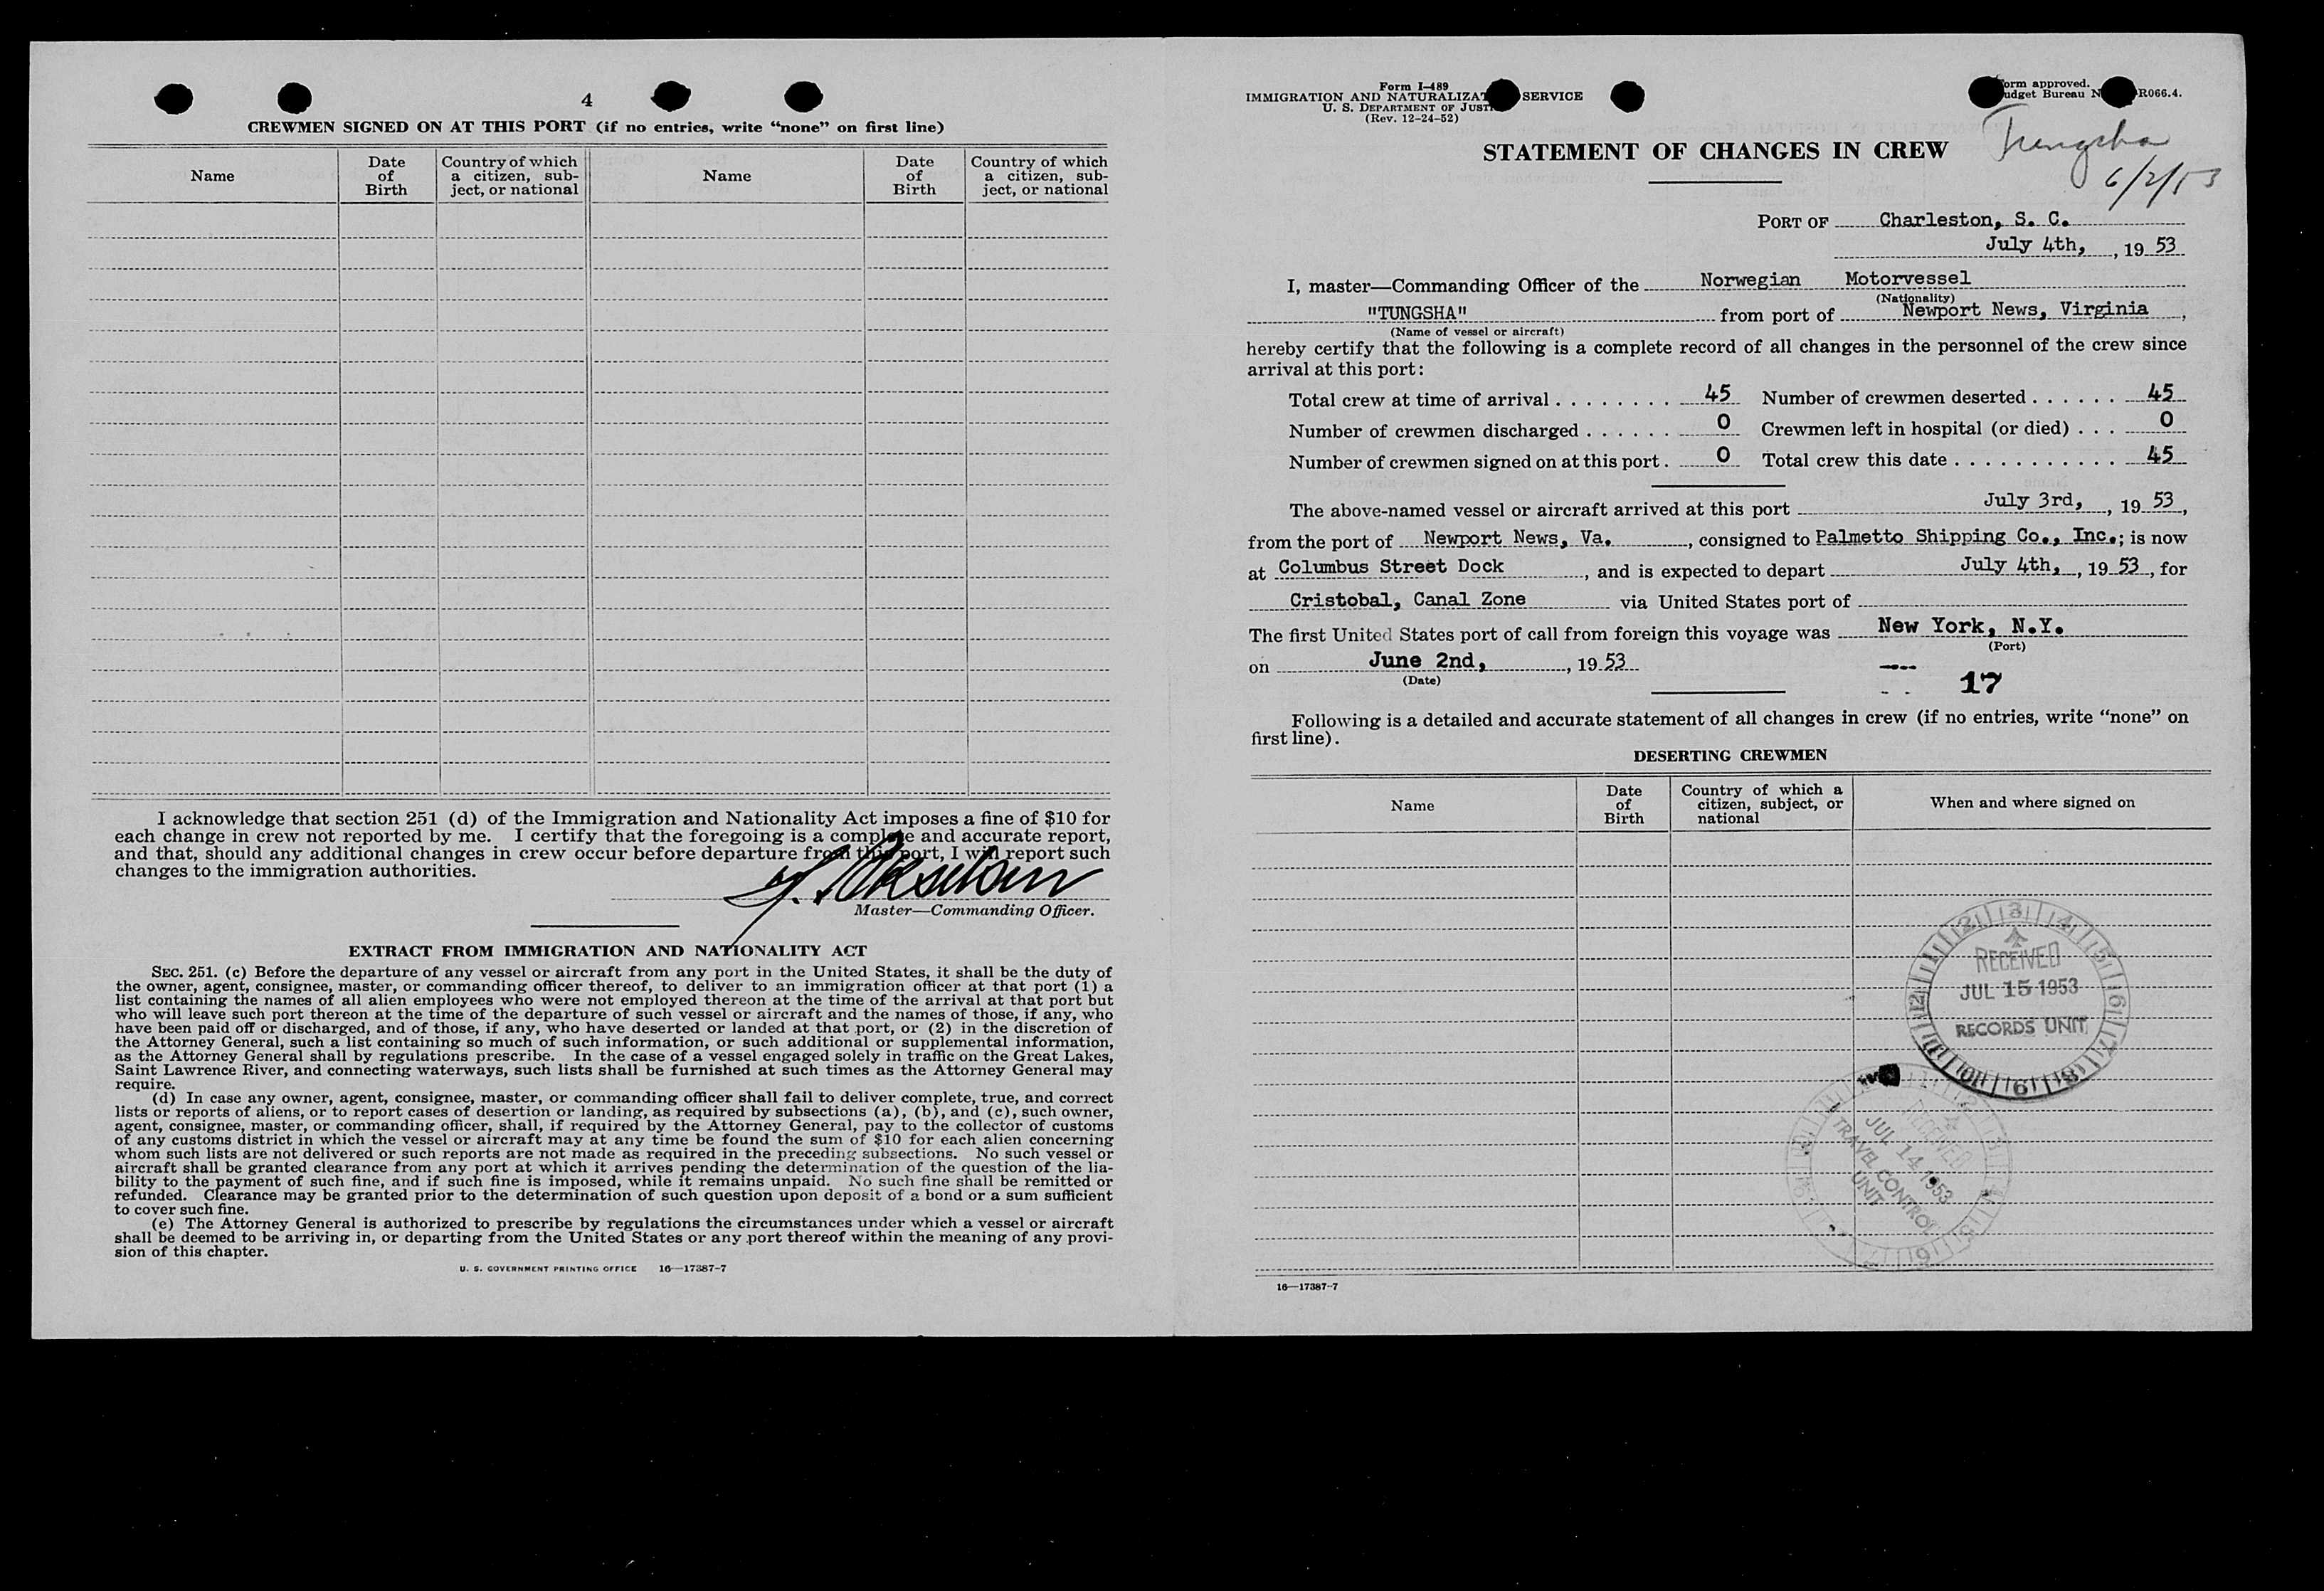 4
CREWMEN SIGNED ON AT THIS PORT (if no entries, write “none” on first line)
Name
Date of Birth
Country of which a citizen, sub-ject, or national
Name
Date of Birth
Country of which a citizen, sub-ject, or national
I acknowledge that section 251 (d) of the Immigration and Nationality Act imposes a fine of $10 for
each change in crew not reported by me. I certify that the foregoing is a complete and accurate report,
and that, should any additional changes in crew occur before departure from this port, I will report such
changes to the immigration authorities.
Master—Commanding Officer.
EXTRACT FROM IMMIGRATION AND NATIONALITY ACT
SEC. 251. (c) Before the departure of any vessel or aircraft from any port in the United States, it shall be the duty of
the owner, agent, consignee, master, or commanding officer thereof, to deliver to an immigration officer at that port (1) a
list containing the names of all alien employees who were not employed thereon at the time of the arrival at that port but
who will leave such port thereon at the time of the departure of such vessel or aircraft and the names of those, if any, who
have been paid off or discharged, and of those, if any, who have deserted or landed at that port, or (2) in the discretion of
the Attorney General, such a list containing so much of such information, or such additional or supplemental information,
as the Attorney General shall by regulations prescribe. In the case of a vessel engaged solely in traffic on the Great Lakes,
Saint Lawrence River, and connecting waterways, such lists shall be furnished at such times as the Attorney General may
require.
(d) In case any owner, agent, consignee, master, or commanding officer shall fail to deliver complete, true, and correct
lists or reports of aliens, or to report cases of desertion or landing, as required by subsections (a), (b), and (c), such owner,
agent, consignee, master, or commanding officer, shall, if required by the Attorney General, pay to the collector of customs
of any customs district in which the vessel or aircraft may at any time be found the sum of $10 for each alien concerning
whom such lists are not delivered or such reports are not made as required in the preceding subsections. No such vessel or
aircraft shall be granted clearance from any port at which it arrives pending the determination of the question of the lia-
bility to the payment of such fine, and if such fine is imposed, while it remains unpaid. No such fine shall be remitted or
refunded. Clearance may be granted prior to the determination of such question upon deposit of a bond or a sum sufficient
to cover such fine.
(e) The Attorney General is authorized to prescribe by regulations the circumstances under which a vessel or aircraft
shall be deemed to be arriving in, or departing from the United States or any port thereof within the meaning of any provi-
sion of this chapter.
U. S. GOVERNMENT PRINTING OFFICE 16—17387-7
Form I-489
IMMIGRATION AND NATURALIZAT SERVICE
U. S. DEPARTMENT OF JUST
(Rev. 12-24-52)
orm approved.
udget Bureau N R066.4.
Tungsha
6/2/53
STATEMENT OF CHANGES IN CREW
PORT OF Charleston, S. C.
July 4th, , 19 53
I, master—Commanding Officer of the Norwegian Motorvessel
(Nationality)
"TUNGSHA" from port of Newport News, Virginia ,
(Name of vessel or aircraft)
hereby certify that the following is a complete record of all changes in the personnel of the crew since
arrival at this port:
Total crew at time of arrival . . . . . . . . 45 Number of crewmen deserted . . . . . . 45
Number of crewmen discharged . . . . . . 0 Crewmen left in hospital (or died) . . . 0
Number of crewmen signed on at this port . 0 Total crew this date . . . . . . . . . . . 45
The above-named vessel or aircraft arrived at this port July 3rd, , 19 53 ,
from the port of Newport News, Va. , consigned to Palmetto Shipping Co., Inc.; is now
at Columbus Street Dock , and is expected to depart July 4th, , 19 53 , for
Cristobal, Canal Zone via United States port of
The first United States port of call from foreign this voyage was New York, N.Y.
(Port)
on June 2nd, , 19 53
(Date)
17
Following is a detailed and accurate statement of all changes in crew (if no entries, write “none” on
first line).
DESERTING CREWMEN
Name
Date of Birth
Country of which a citizen, subject, or national
When and where signed on
RECEIVED
JUL 15 1953
RECORDS UNIT
RECEIVED
JUL 14 1953
TRAVEL CONTROL
UNIT
16—17387-7